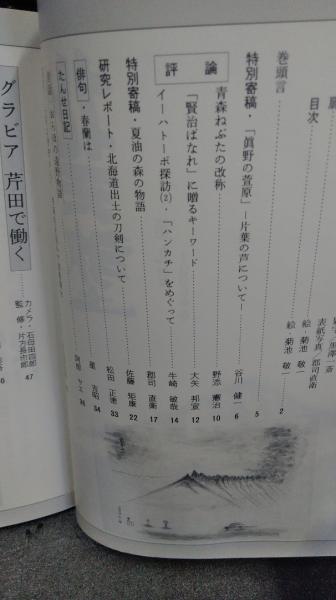 目次
表紙写真・郡司直衛
絵・菊池 敬一
絵・菊池 敬一
巻頭言 2
特別寄稿・「眞野の萱原」―片葉の芦について― 谷川 健一 5
評論
青森ねぶたの改称 野添 憲治 10
「賢治ばなれ」に贈るキーワード 大矢 邦宣 12
イーハトーボ探訪(2)・「ハンカチ」をめぐって 牛崎 敏哉 14
特別寄稿・夏油の森の物語 郡司 直衛 17
佐藤 矩康 22
研究レポート・北海道出土の刀剣について
松田 正徳 33
俳句・春蘭は
34
たんせ日記
グラビア 芹田で働く
カメラ・石母田四郎
監修・片方長治郎
47